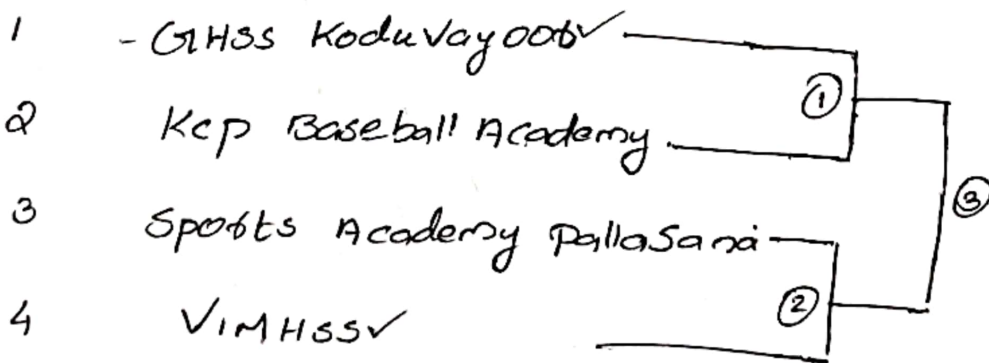 1 - GHSS Koduvayoor ✓
①
2 Kcp Baseball Academy
③
3 Sports Academy Pallasana
②
4 VIMHSS ✓